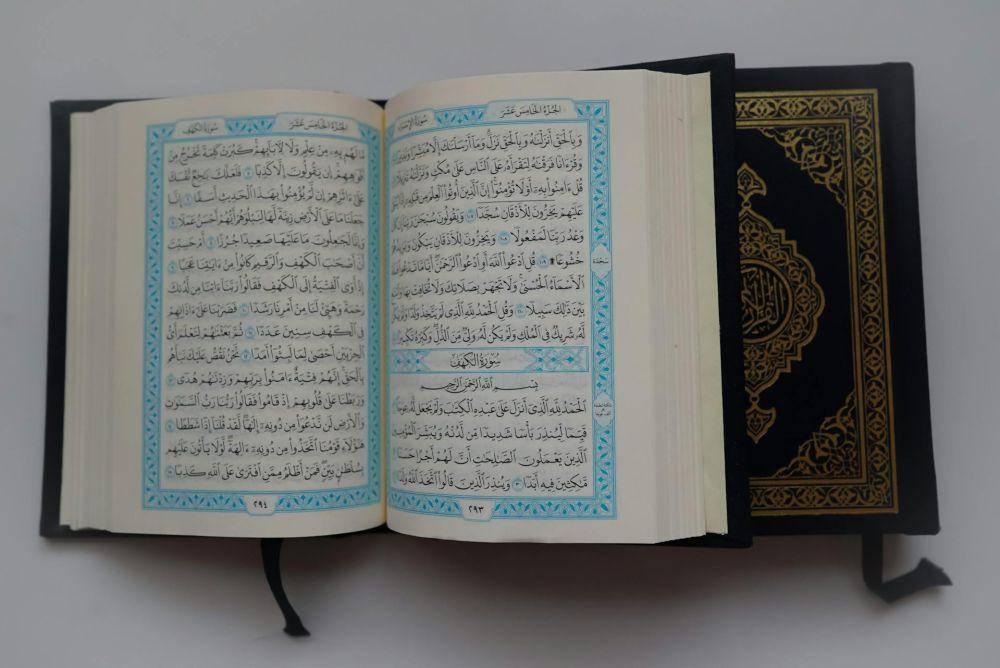 الجزء الخامس عشر
سورة الإسراء
وَبِالْحَقِّ أَنزَلْنَٰهُ وَبِالْحَقِّ نَزَلَ ۗ وَمَا أَرْسَلْنَٰكَ إِلَّا مُبَشِّرًا وَنَذِيرًا
وَقُرْءَانًا فَرَقْنَٰهُ لِتَقْرَأَهُ عَلَى النَّاسِ عَلَىٰ مُكْثٍ وَنَزَّلْنَٰهُ
قُلْ ءَامِنُوا بِهِ أَوْ لَا تُؤْمِنُوا ۚ إِنَّ الَّذِينَ أُوتُوا الْعِلْمَ مِن قَبْلِهِ
عَلَيْهِمْ يَخِرُّونَ لِلْأَذْقَانِ سُجَّدًا ١٠٧ وَيَقُولُونَ سُبْحَٰنَ رَبِّنَا
وَعْدُ رَبِّنَا لَمَفْعُولًا ١٠٨ وَيَخِرُّونَ لِلْأَذْقَانِ يَبْكُونَ وَيَزِيدُهُمْ
خُشُوعًا ۩ ١٠٩ قُلِ ادْعُوا اللَّهَ أَوِ ادْعُوا الرَّحْمَٰنَ ۖ أَيًّا مَّا تَدْعُوا
الْأَسْمَاءُ الْحُسْنَىٰ ۚ وَلَا تَجْهَرْ بِصَلَاتِكَ وَلَا تُخَافِتْ بِهَا
بَيْنَ ذَٰلِكَ سَبِيلًا ١١٠ وَقُلِ الْحَمْدُ لِلَّهِ الَّذِي لَمْ يَتَّخِذْ وَلَدًا
لَّهُ شَرِيكٌ فِي الْمُلْكِ وَلَمْ يَكُن لَّهُ وَلِيٌّ مِّنَ الذُّلِّ ۖ وَكَبِّرْهُ تَكْبِيرًا
سجدة
سورة الكهف
بِسْمِ اللَّهِ الرَّحْمَٰنِ الرَّحِيمِ
الْحَمْدُ لِلَّهِ الَّذِي أَنزَلَ عَلَىٰ عَبْدِهِ الْكِتَٰبَ وَلَمْ يَجْعَل لَّهُ عِوَجَا
قَيِّمًا لِّيُنذِرَ بَأْسًا شَدِيدًا مِّن لَّدُنْهُ وَيُبَشِّرَ الْمُؤْمِنِينَ
الَّذِينَ يَعْمَلُونَ الصَّٰلِحَٰتِ أَنَّ لَهُمْ أَجْرًا حَسَنًا
مَّٰكِثِينَ فِيهِ أَبَدًا ٣ وَيُنذِرَ الَّذِينَ قَالُوا اتَّخَذَ اللَّهُ وَلَدًا
٢٩٣
الجزء الخامس عشر
سورة الكهف
مَّا لَهُم بِهِ مِنْ عِلْمٍ وَلَا لِءَابَائِهِمْ ۚ كَبُرَتْ كَلِمَةً تَخْرُجُ مِنْ
أَفْوَٰهِهِمْ ۚ إِن يَقُولُونَ إِلَّا كَذِبًا ٥ فَلَعَلَّكَ بَٰخِعٌ نَّفْسَكَ
عَلَىٰ ءَاثَٰرِهِمْ إِن لَّمْ يُؤْمِنُوا بِهَٰذَا الْحَدِيثِ أَسَفًا ٦ إِنَّا
جَعَلْنَا مَا عَلَى الْأَرْضِ زِينَةً لَّهَا لِنَبْلُوَهُمْ أَيُّهُمْ أَحْسَنُ عَمَلًا ٧
وَإِنَّا لَجَٰعِلُونَ مَا عَلَيْهَا صَعِيدًا جُرُزًا ٨ أَمْ حَسِبْتَ
أَنَّ أَصْحَٰبَ الْكَهْفِ وَالرَّقِيمِ كَانُوا مِنْ ءَايَٰتِنَا عَجَبًا ٩
إِذْ أَوَى الْفِتْيَةُ إِلَى الْكَهْفِ فَقَالُوا رَبَّنَا ءَاتِنَا مِن لَّدُنكَ
رَحْمَةً وَهَيِّئْ لَنَا مِنْ أَمْرِنَا رَشَدًا ١٠ فَضَرَبْنَا عَلَىٰ ءَاذَانِهِمْ
فِي الْكَهْفِ سِنِينَ عَدَدًا ١١ ثُمَّ بَعَثْنَٰهُمْ لِنَعْلَمَ أَيُّ
الْحِزْبَيْنِ أَحْصَىٰ لِمَا لَبِثُوا أَمَدًا ١٢ نَّحْنُ نَقُصُّ عَلَيْكَ نَبَأَهُم
بِالْحَقِّ ۚ إِنَّهُمْ فِتْيَةٌ ءَامَنُوا بِرَبِّهِمْ وَزِدْنَٰهُمْ هُدًى ١٣
وَرَبَطْنَا عَلَىٰ قُلُوبِهِمْ إِذْ قَامُوا فَقَالُوا رَبُّنَا رَبُّ السَّمَٰوَٰتِ
وَالْأَرْضِ لَن نَّدْعُوَا مِن دُونِهِ إِلَٰهًا ۖ لَّقَدْ قُلْنَا إِذًا شَطَطًا ١٤
هَٰؤُلَاءِ قَوْمُنَا اتَّخَذُوا مِن دُونِهِ ءَالِهَةً ۖ لَّوْلَا يَأْتُونَ عَلَيْهِم
بِسُلْطَٰنٍ بَيِّنٍ ۖ فَمَنْ أَظْلَمُ مِمَّنِ افْتَرَىٰ عَلَى اللَّهِ كَذِبًا ١٥
٢٩٤